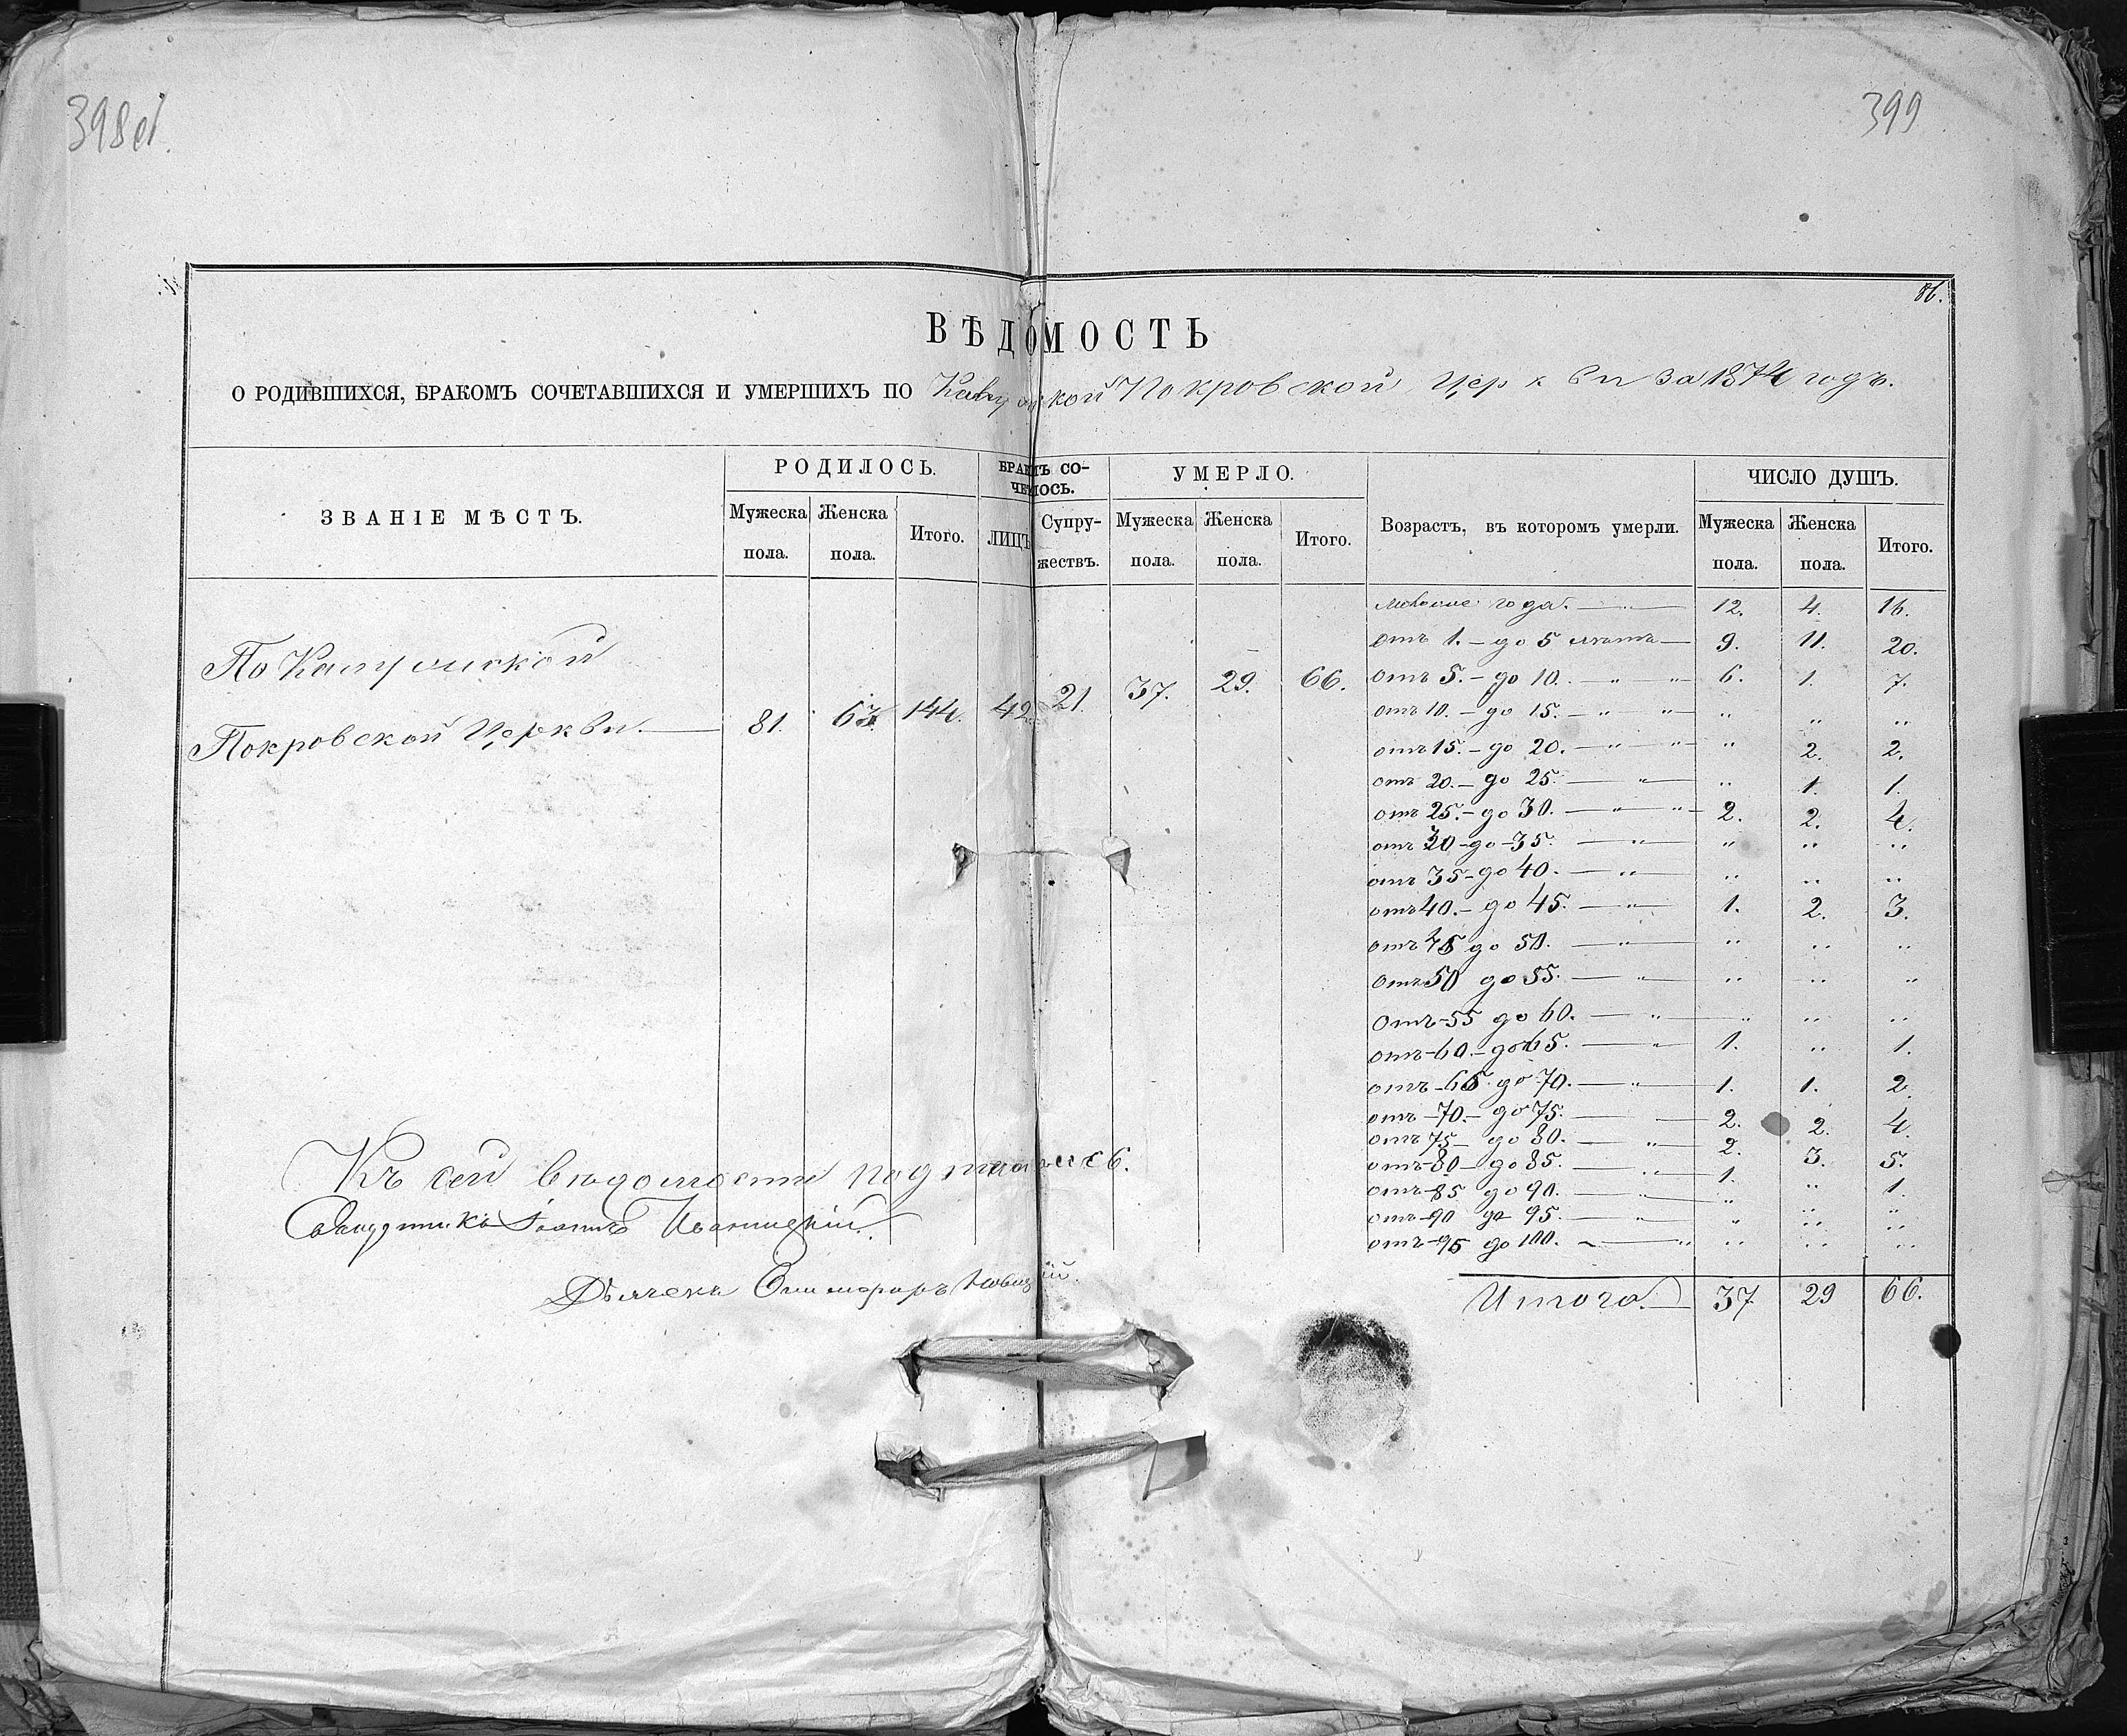 398об.
399
86.
ВѢДОМОСТЬ
О РОДИВШИХСЯ, БРАКОМЪ СОЧЕТАВШИХСЯ И УМЕРШИХЪ ПО Покровской Церкви за 1874 годъ.
ЗВАНІЕ МѢСТЪ. РОДИЛОСЬ. УМЕРЛО. Возрастъ, въ которомъ умерли. ЧИСЛО ДУШЪ.
Мужеска пола. Женска пола. Итого. ЛИЦЪ Супружествъ. Мужеска пола. Женска пола. Итого. Мужеска пола. Женска пола. Итого.
По
Покровской Церкви. 81. 63. 144. 42. 21. 37. 29. 66.
менѣе года. 12. 4. 16.
отъ 1. – до 5 лѣтъ 9. 11. 20.
отъ 5. – до 10. – „ – „ 6. 1. 7.
отъ 10. – до 15. – „ „ „ „ „
отъ 15. – до 20. – „ „ „ 2. 2.
отъ 20. – до 25. – „ „ 1. 1.
отъ 25. – до 30. – „ „ 2. 2. 4.
отъ 30 – до – 35. – „ „ „ „
отъ 35 – до 40. – „ „ „ „
отъ 40. – до 45. – „ 1. 2. 3.
отъ 45 до 50. – „ „ „ „
отъ 50 до 55. – „ „ „ „
отъ – 55 до 60. – „ „ „ „
отъ – 60. – до 65. – „ 1. „ 1.
отъ – 65 до 70. – „ 1. 1. 2.
отъ – 70. – до 75. – 2. 2. 4.
отъ 75 – до 80. – „ 2. 3. 5.
отъ – 80 – до 85. – „ 1. „ 1.
отъ – 85 до 90. – „ „ „ „
отъ – 90 до 95. – „ „ „ „
отъ – 95 до 100. – „ „ „ „
Итого. 37 29 66.
Къ сей вѣдомости подписался
Іоаннъ